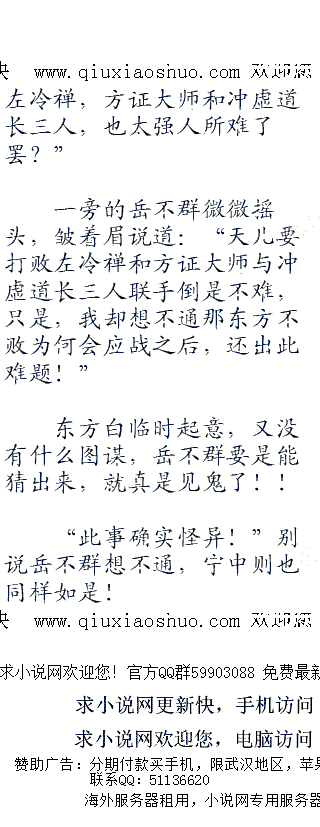 快 www.qiuxiaoshuo.com 欢迎您
左冷禅，方证大师和冲虚道
长三人，也太强人所难了
罢？”
一旁的岳不群微微摇
头，皱着眉说道：“天儿要
打败左冷禅和方证大师与冲
虚道长三人联手倒是不难，
只是，我却想不通那东方不
败为何会应战之后，还出此
难题！”
东方白临时起意，又没
有什么图谋，岳不群要是能
猜出来，就真是见鬼了！！
“此事确实怪异！”别
说岳不群想不通，宁中则也
同样如是！
快 www.qiuxiaoshuo.com 欢迎您
求小说网欢迎您！官方QQ群59903088 免费最新
求小说网更新快，手机访问
求小说网欢迎您，电脑访问
赞助广告：分期付款买手机，限武汉地区，苹果
联系QQ：51136620
海外服务器租用，小说网专用服务器